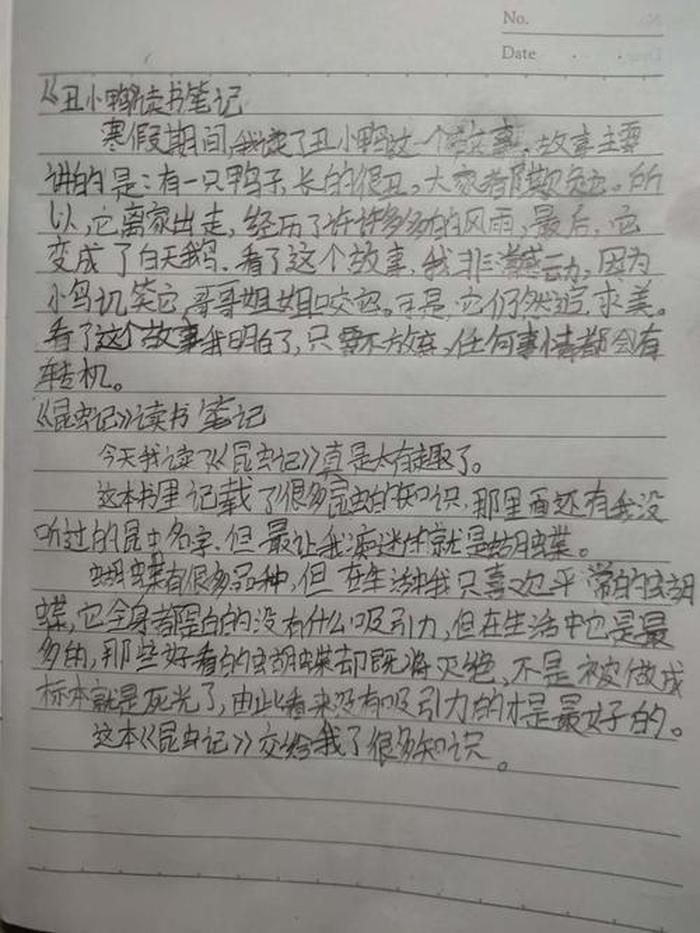 No.
Date
《丑小鸭读书笔记
寒假期间,我读了丑小鸭这一个故事,故事主要
讲的是:有一只鸭子,长的很丑。大家都欺负它。所
以,它离家出走,经历了许许多多的风雨,最后,它
变成了白天鹅.看了这个故事,我非常感动,因为
小鸟讥笑它,哥哥姐姐咬它。于是,它仍然追求美。
看了这个故事我明白了,只要不放弃,任何事情都会有
转机。
《昆虫记》读书笔记
今天我读了《昆虫记》真是太有趣了。
这本书里记载了很多昆虫的知识,那里面还有我没
听过的昆虫名字.但最让我痴迷的就是蝴蝶。
蝴蝶有很多品种,但在生活中我只喜欢平常的蝴
蝶,它全身都是白的没有什么吸引力,但在生活中它是最
多的,那些好看的蝴蝶却既将灭绝,不是被做成
标本就是死光了,由此看来没有吸引力的才是最好的。
这本《昆虫记》交给我了很多知识。